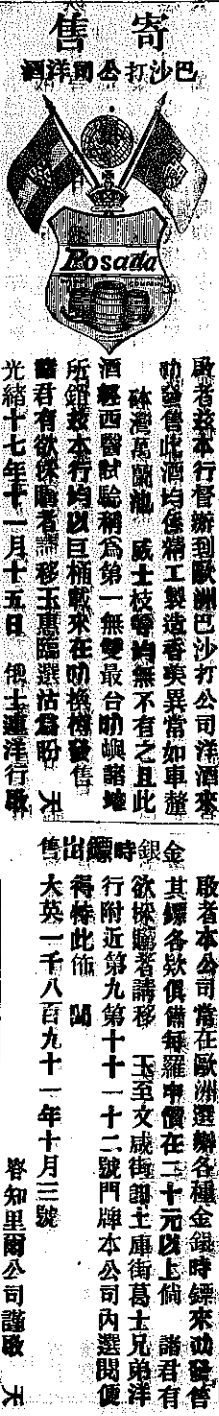 寄售
巴沙打公司洋酒
Posada
啟者茲本行督辦到歐洲巴沙打公司洋酒來
叻發售此酒均係精工製造香美異常如車厘
砵灣萬蘭池 威士枝等均無不有之且此
酒經西醫試驗稱為第一無雙最合叻嶼諸埠
所銷茲本行均以巨桶載來在叻換樽發售
諸君有欲採購者請移玉惠臨選沽為盼 天
光緒十七年十一月十五日 俬士連洋行啟
金銀時鏢出售
啟者本公司常在歐洲選辦各種金銀時鏢來叻發售
其鏢各欵俱備每羅申價在二十元以上倘 諸君有
欲採購者請移 玉至文咸街即土庫街葛士兄弟洋
行附近第九第十十一十二號門牌本公司內選閱便
得特此佈 聞
大英一千八百九十一年十月三號
喀知里爾公司謹啟 天